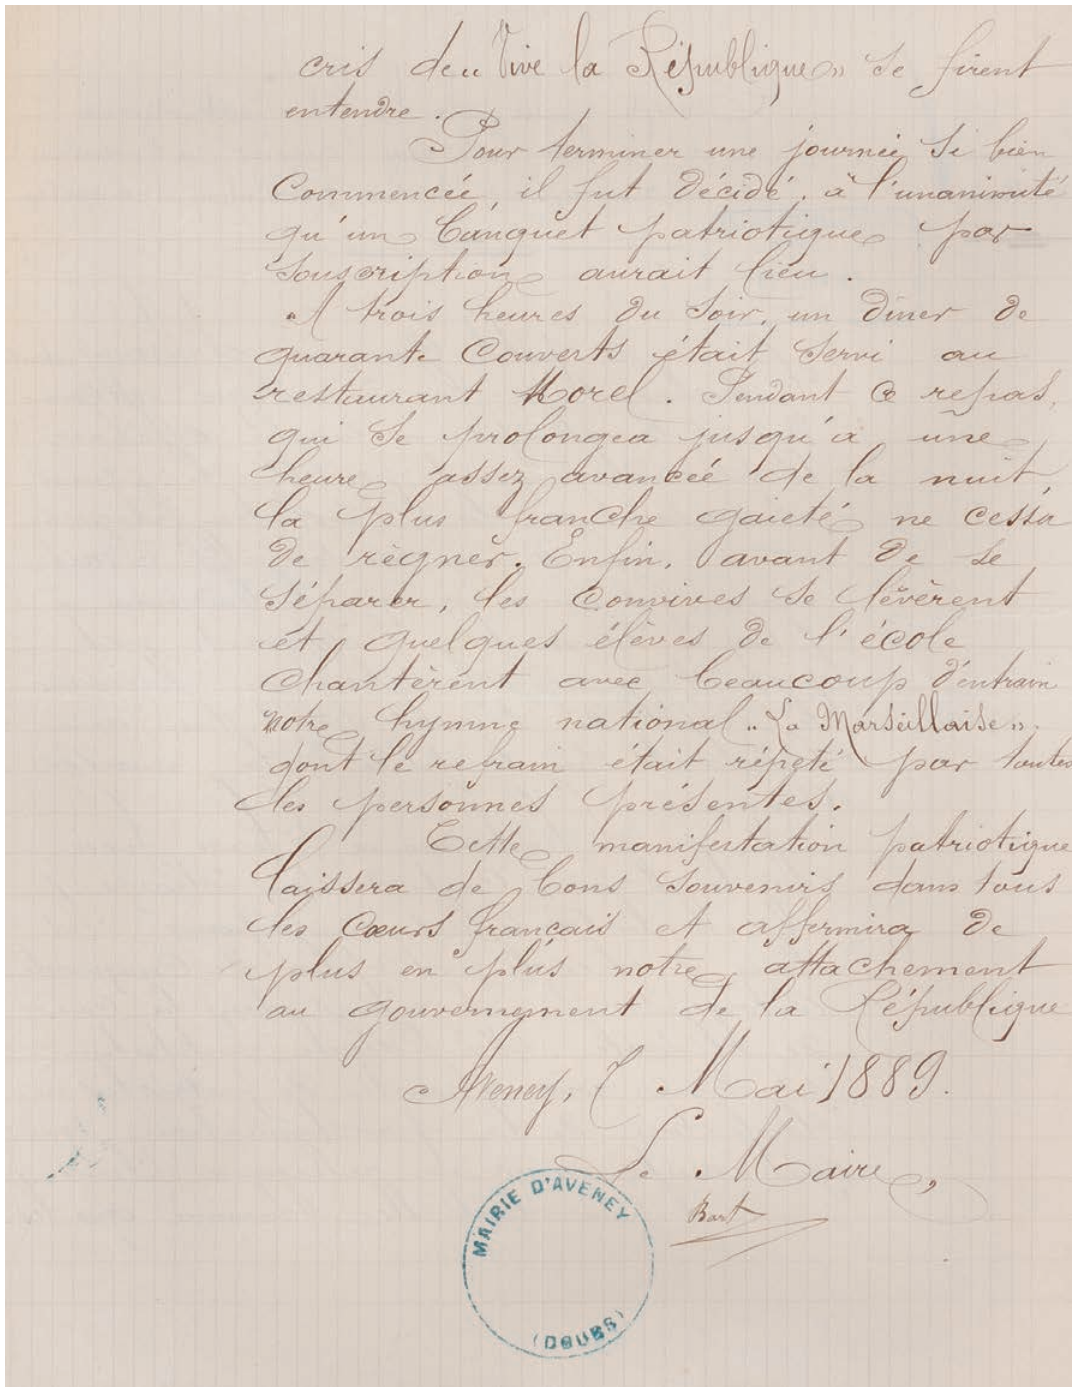 cris de „ Vive la République » se firent
entendre.
Pour terminer une journée si bien
Commencée, il fut décidé, à l'unanimité
qu'un banquet patriotique par
souscription aurait lieu.
A trois heures du soir, un dîner de
quarante Couverts était servi au
restaurant Morel. Pendant ce repas,
qui se prolongea jusqu'à une
heure assez avancée de la nuit,
la plus franche gaieté ne cessa
de règner. Enfin, avant de se
séparer, les Convives se levèrent
et quelques élèves de l'école
Chantèrent avec beaucoup d'entrain
notre hymne national „ La Marseillaise »,
dont le refrain était répeté par toutes
les personnes présentes.
Cette manifestation patriotique
laissera de bons souvenirs dans tous
les Cœurs français et affermira de
plus en plus notre attachement
au gouvernement de la République
Aveney, 7 Mai 1889.
Le Maire,
Bart
MAIRIE D'AVENEY
(DOUBS)